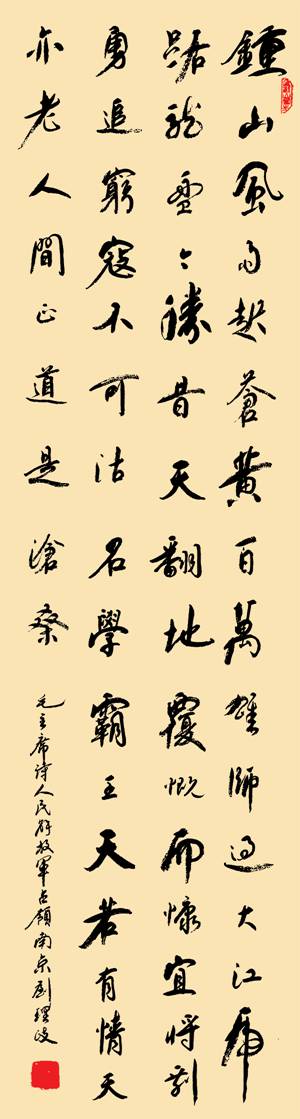 鍾山風雨起蒼黃百萬雄師過大江虎
踞龍盤今勝昔天翻地覆慨而慷宜將剩
勇追窮寇不可沽名學霸王天若有情天
亦老人間正道是滄桑
毛主席詩人民解放軍占領南京劉理